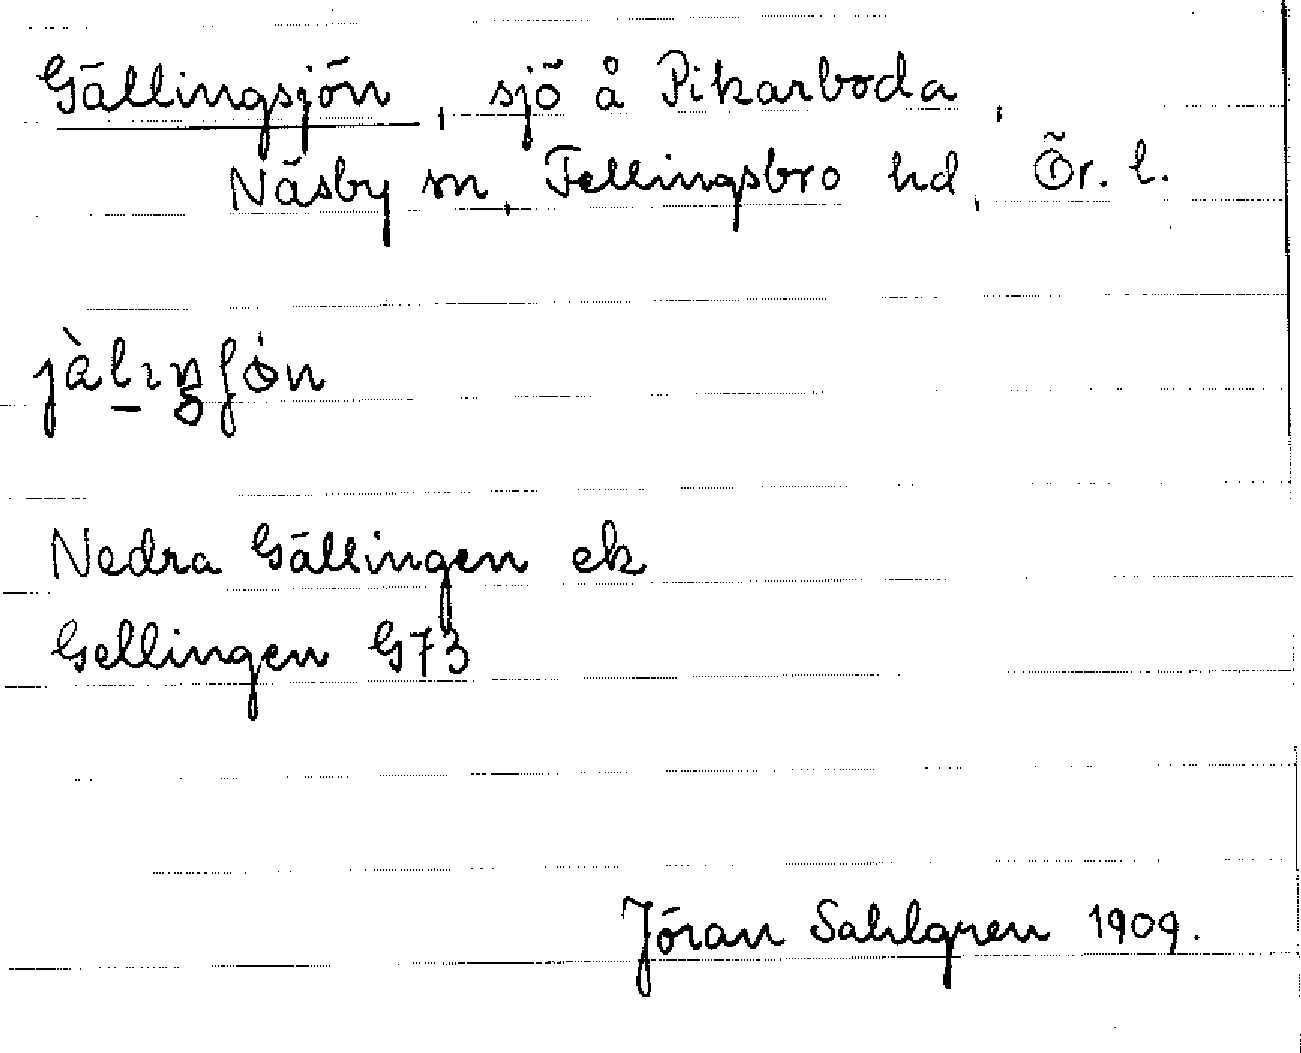 Gällingsjön, sjö å Pikarboda,
Näsby sn, Fellingsbro hd, Ör. l.
Nedra Gällingen ek
Gellingen G73
Jöran Sahlgren 1909.